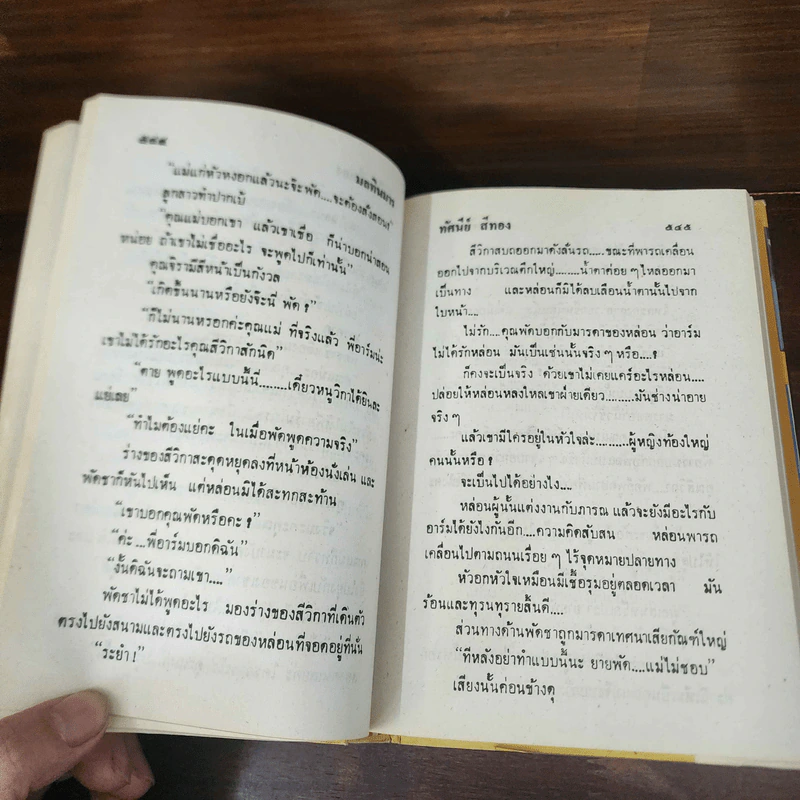 ๕๔๔
มลทินมาร
"แม่แก่หัวหงอกแล้วนะจ๊ะพัด....จะต้องสั่งสอน?"
ลูกสาวทำปากเบ้
"คุณแม่บอกเขา แล้วเขาเชื่อ ก็น่าบอกน่าสอน
หน่อย ถ้าเขาไม่เชื่ออะไร จะพูดไปก็เท่านั้น"
คุณจิรามีสีหน้าเป็นกังวล
"เกิดขึ้นนานหรือยังจ๊ะนี่ พัด ?"
"ก็ไม่นานหรอกค่ะคุณแม่ ที่จริงแล้ว พี่อาร์มน่ะ
เขาไม่ได้รักอะไรคุณสีวิกาสักนิด"
"ตาย พูดอะไรแบบนี้นี่.........เดี๋ยวหนูวิกาได้ยินละ
แย่เลย"
"ทำไมต้องแย่คะ ในเมื่อพัดพูดความจริง"
ร่างของสีวิกาสะดุดหยุดลงที่หน้าห้องนั่งเล่น และ
พัดชาก็หันไปเห็น แต่หล่อนมิได้สะทกสะท้าน
"เขาบอกคุณพัดหรือคะ ?"
"ค่ะ ...พี่อาร์มบอกดิฉัน"
"งั้นดิฉันจะถามเขา...."
พัดชาไม่ได้พูดอะไร มองร่างของสีวิกาที่เดินตัว
ตรงไปยังสนามและตรงไปยังรถของหล่อนที่จอดอยู่ที่นั่น
"ระยำ !"
ทัศนีย์ สีทอง
๕๔๕
สีวิกาสบถออกมาดังลั่นรถ.....ขณะที่พารถเคลื่อน
ออกไปจากบริเวณตึกใหญ่........น้ำตาค่อย ๆ ไหลออกมา
เป็นทาง และหล่อนก็มิได้ลบเลือนน้ำตานั้นไปจาก
ใบหน้า....
ไม่รัก....คุณพัดบอกกับมารดาของหล่อน ว่าอาร์ม
ไม่ได้รักหล่อน มันเป็นเช่นนั้นจริง ๆ หรือ....?
ก็คงจะเป็นจริง ด้วยเขาไม่เคยแคร์อะไรหล่อน....
ปล่อยให้หล่อนหลงใหลเขาฝ่ายเดียว.........มันช่างน่าอาย
จริง ๆ
แล้วเขามีใครอยู่ในหัวใจล่ะ.........ผู้หญิงท้องใหญ่
คนนั้นหรือ ?
จะเป็นไปได้อย่างไร....
หล่อนผู้นั้นแต่งงานกับภารณ แล้วจะยังมีอะไรกับ
อาร์มได้ยังไงกันอีก....ความคิดสับสน หล่อนพารถ
เคลื่อนไปตามถนนเรื่อย ๆ ไร้จุดหมายปลายทาง
หัวอกหัวใจเหมือนมีเชื้อรุมอยู่ตลอดเวลา มัน
ร้อนและทุรนทุรายสิ้นดี....
ส่วนทางด้านพัดชาถูกมารดาเทศนาเสียกัณฑ์ใหญ่
"ทีหลังอย่าทำแบบนี้นะ ยายพัด....แม่ไม่ชอบ"
เสียงนั้นค่อนข้างดุ